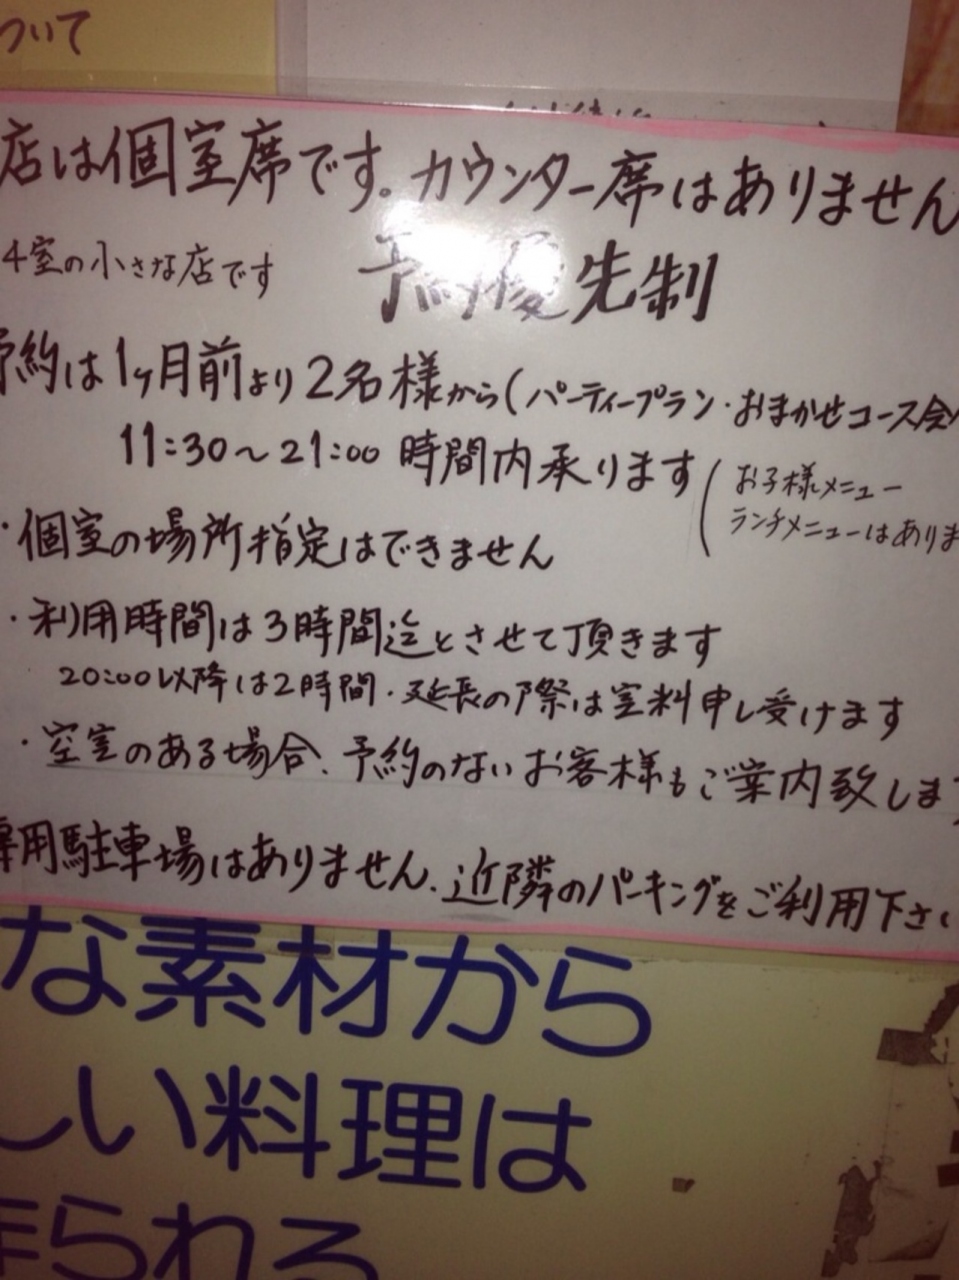 ついて
店は個室席です。カウンター席はありません
4室の小さな店です
予約優先制
予約は1ヶ月前より2名様から(パーティープラン・おまかせコース会
11:30〜21:00 時間内承ります
(お子様メニュー
ランチメニューはありま
・個室の場所指定はできません
・利用時間は3時間迄とさせて頂きます
20:00以降は2時間・延長の際は室料申し受けます
・空室のある場合、予約のないお客様もご案内致しま
専用駐車場はありません。近隣のパーキングをご利用下さい
な素材から
しい料理は
作られる